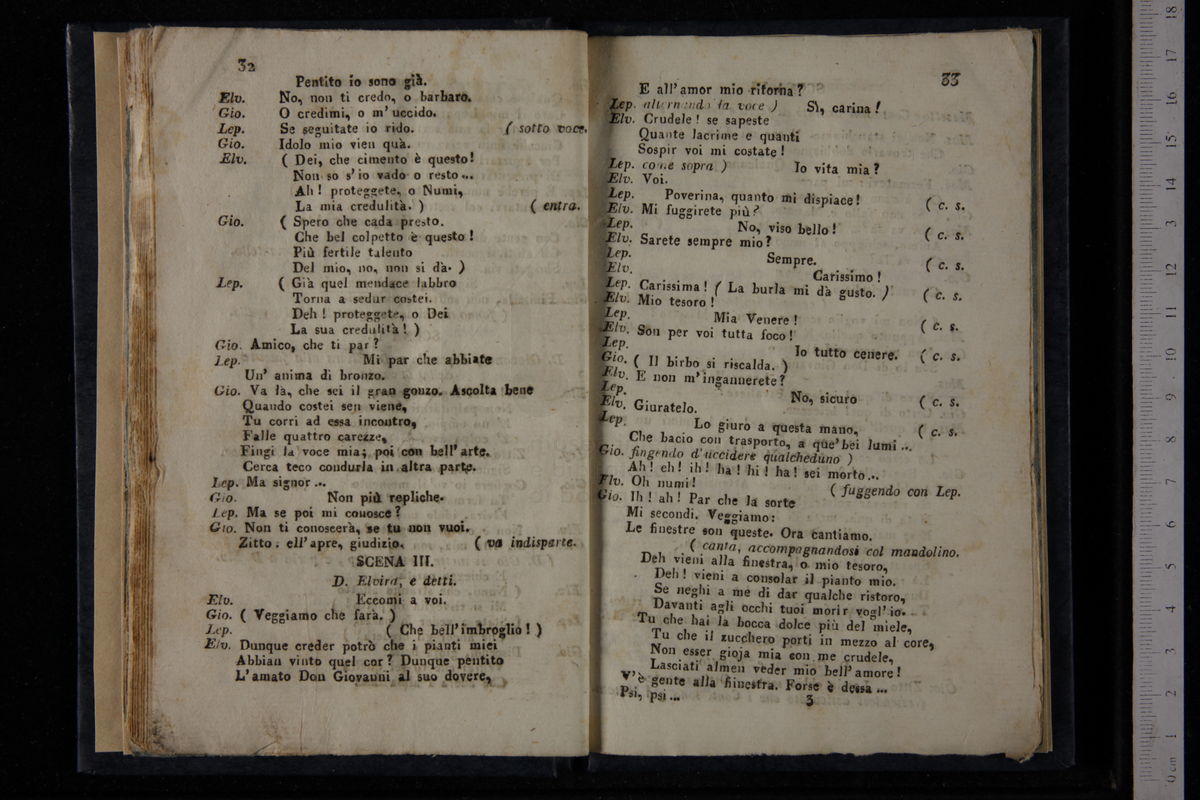 32
Pentito io sono già.
Elv. No, non ti credo, o barbaro.
Gio. O credimi, o m'uccido.
Lep. Se seguitate io rido. ( sotto voce.
Gio. Idolo mio vien quà.
Elv. ( Dei, che cimento è questo!
Non so s'io vado o resto...
Ah! proteggete, o Numi,
La mia credulità. ) ( entra.
Gio. ( Spero che cada presto.
Che bel colpetto è questo!
Più fertile talento
Del mio, no, non si dà. )
Lep. ( Già quel mendace labbro
Torna a sedur costei.
Deh! proteggete, o Dei
La sua credulità! )
Gio. Amico, che ti par?
Lep. Mi par che abbiate
Un' anima di bronzo.
Gio. Va là, che sei il gran gonzo. Ascolta bene
Quando costei sen viene,
Tu corri ad essa incontro,
Falle quattro carezze,
Fingi la voce mia; poi con bell'arte.
Cerca teco condurla in altra parte.
Lep. Ma signor...
Gio. Non più repliche.
Lep. Ma se poi mi conosce?
Gio. Non ti conoscerà, se tu non vuoi.
Zitto: ell'apre, giudizio. ( va indisparte.
SCENA III.
D. Elvira, e detti.
Elv. Eccomi a voi.
Gio. ( Veggiamo che farà. )
Lep. ( Che bell'imbroglio! )
Elv. Dunque creder potrò che i pianti miei
Abbian vinto quel cor? Dunque pentito
L'amato Don Giovanni al suo dovere,
33
E all'amor mio ritorna?
Lep. alternando la voce ) Sì, carina!
Elv. Crudele! se sapeste
Quante lacrime e quanti
Sospir voi mi costate!
Lep. come sopra ) Io vita mia?
Elv. Voi.
Lep. Poverina, quanto mi dispiace!
Elv. Mi fuggirete più? ( c. s.
Lep. No, viso bello!
Elv. Sarete sempre mio? ( c. s.
Lep. Sempre.
Elv. Carissimo! ( c. s.
Lep. Carissima! ( La burla mi dà gusto. )
Elv. Mio tesoro! ( c. s.
Lep. Mia Venere!
Elv. Son per voi tutta foco! ( c. s.
Lep. Io tutto cenere. ( c. s.
Gio. ( Il birbo si riscalda. )
Elv. E non m'ingannerete?
Lep. No, sicuro ( c. s.
Elv. Giuratelo.
Lep. Lo giuro a questa mano, ( c. s.
Che bacio con trasporto, a que'bei lumi...
Gio. fingendo d'uccidere qualcheduno )
Ah! eh! ih! ha! hi! ha! sei morto...
Elv. Oh numi! ( fuggendo con Lep.
Gio. Ih! ah! Par che la sorte
Mi secondi. Veggiamo:
Le finestre son queste. Ora cantiamo.
( canta, accompagnandosi col mandolino.
Deh vieni alla finestra, o mio tesoro,
Deh! vieni a consolar il pianto mio.
Se neghi a me di dar qualche ristoro,
Davanti agli occhi tuoi morir vogl'io.
Tu che hai la bocca dolce più del miele,
Tu che il zucchero porti in mezzo al core,
Non esser gioja mia con me crudele,
Lasciati almen veder mio bell'amore!
V'è gente alla finestra. Forse è dessa...
Psi, psi...
3